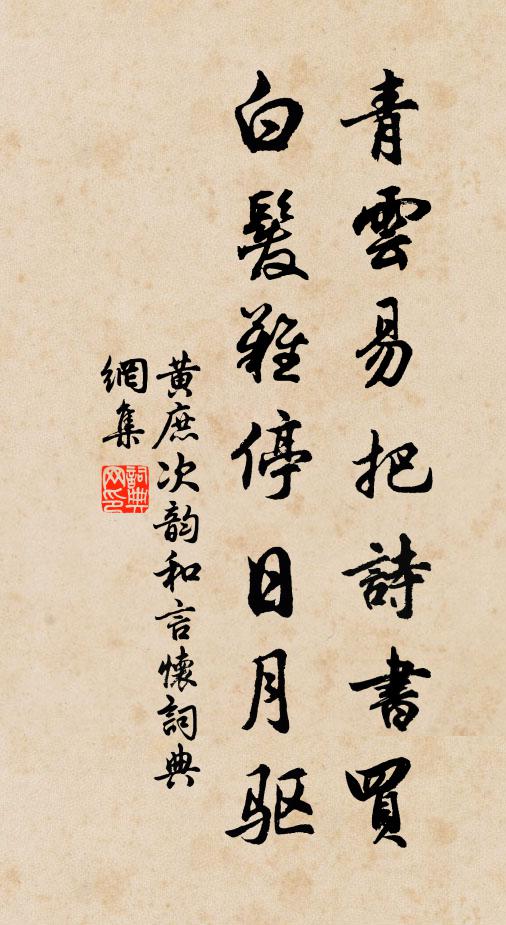 青雲易把詩書買
白髮難停日月驱
黄庶次韵和言懷詞典
網集
詞典網印